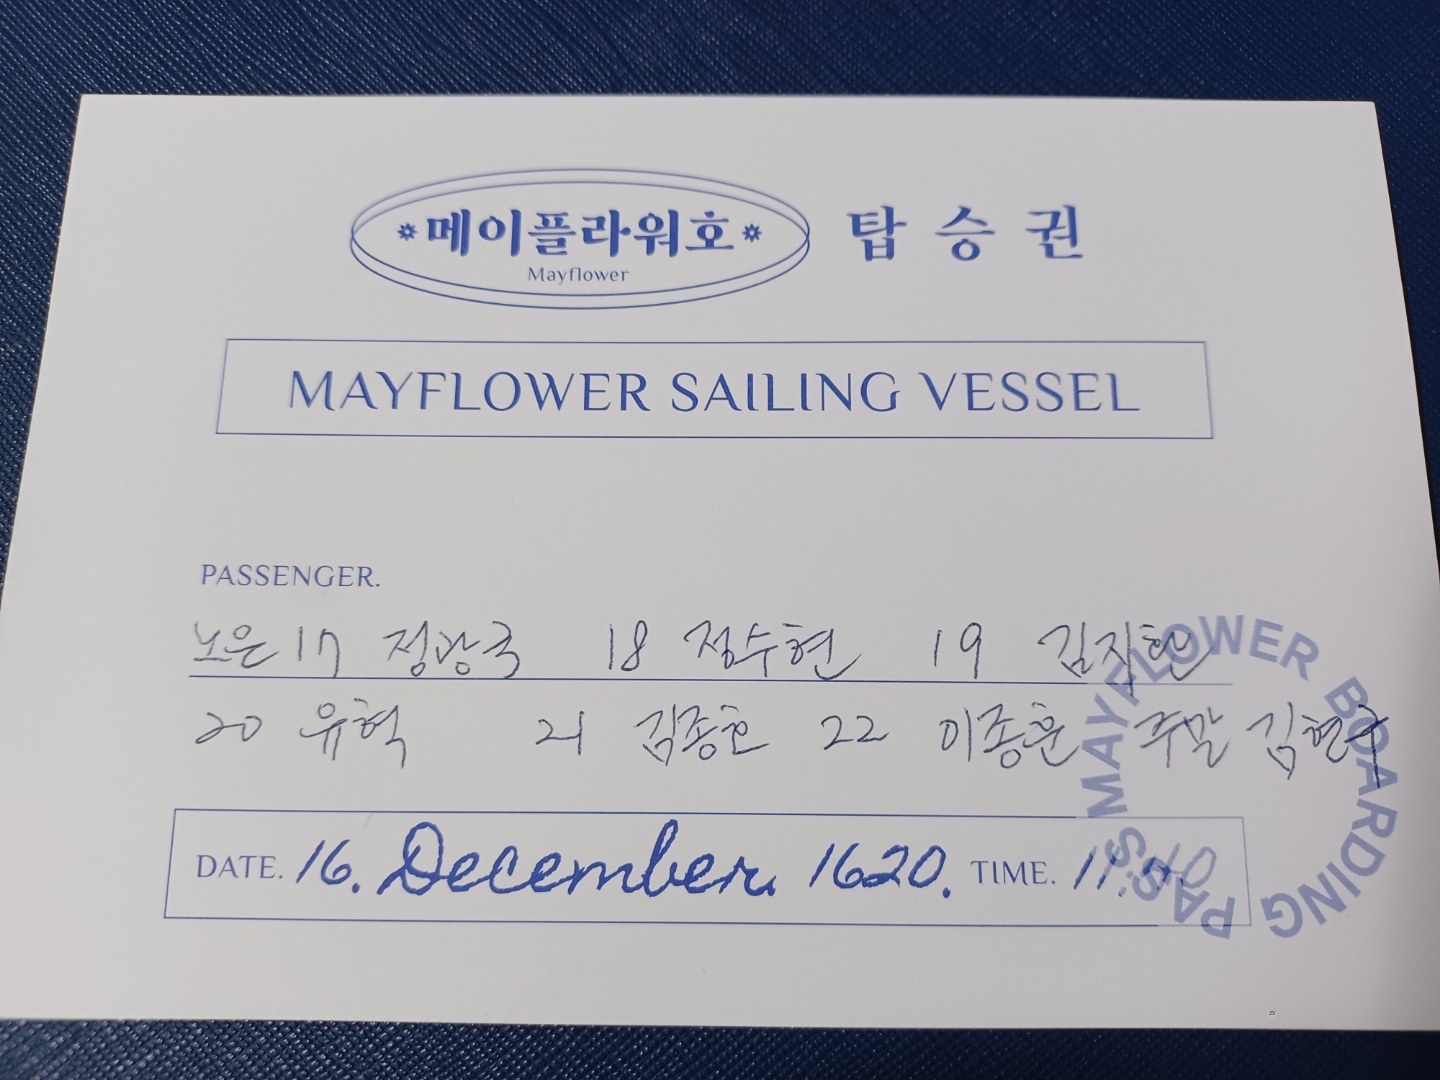 메이플라워호 탑승권
Mayflower
MAYFLOWER SAILING VESSEL
PASSENGER.
노은 17 정광국 18 정수현 19 김지한
20 유혁 21 김종호 22 이종훈 주말 김현수
DATE. 16. December. 1620. TIME. 11:50
MAYFLOWER BOARDING PASS